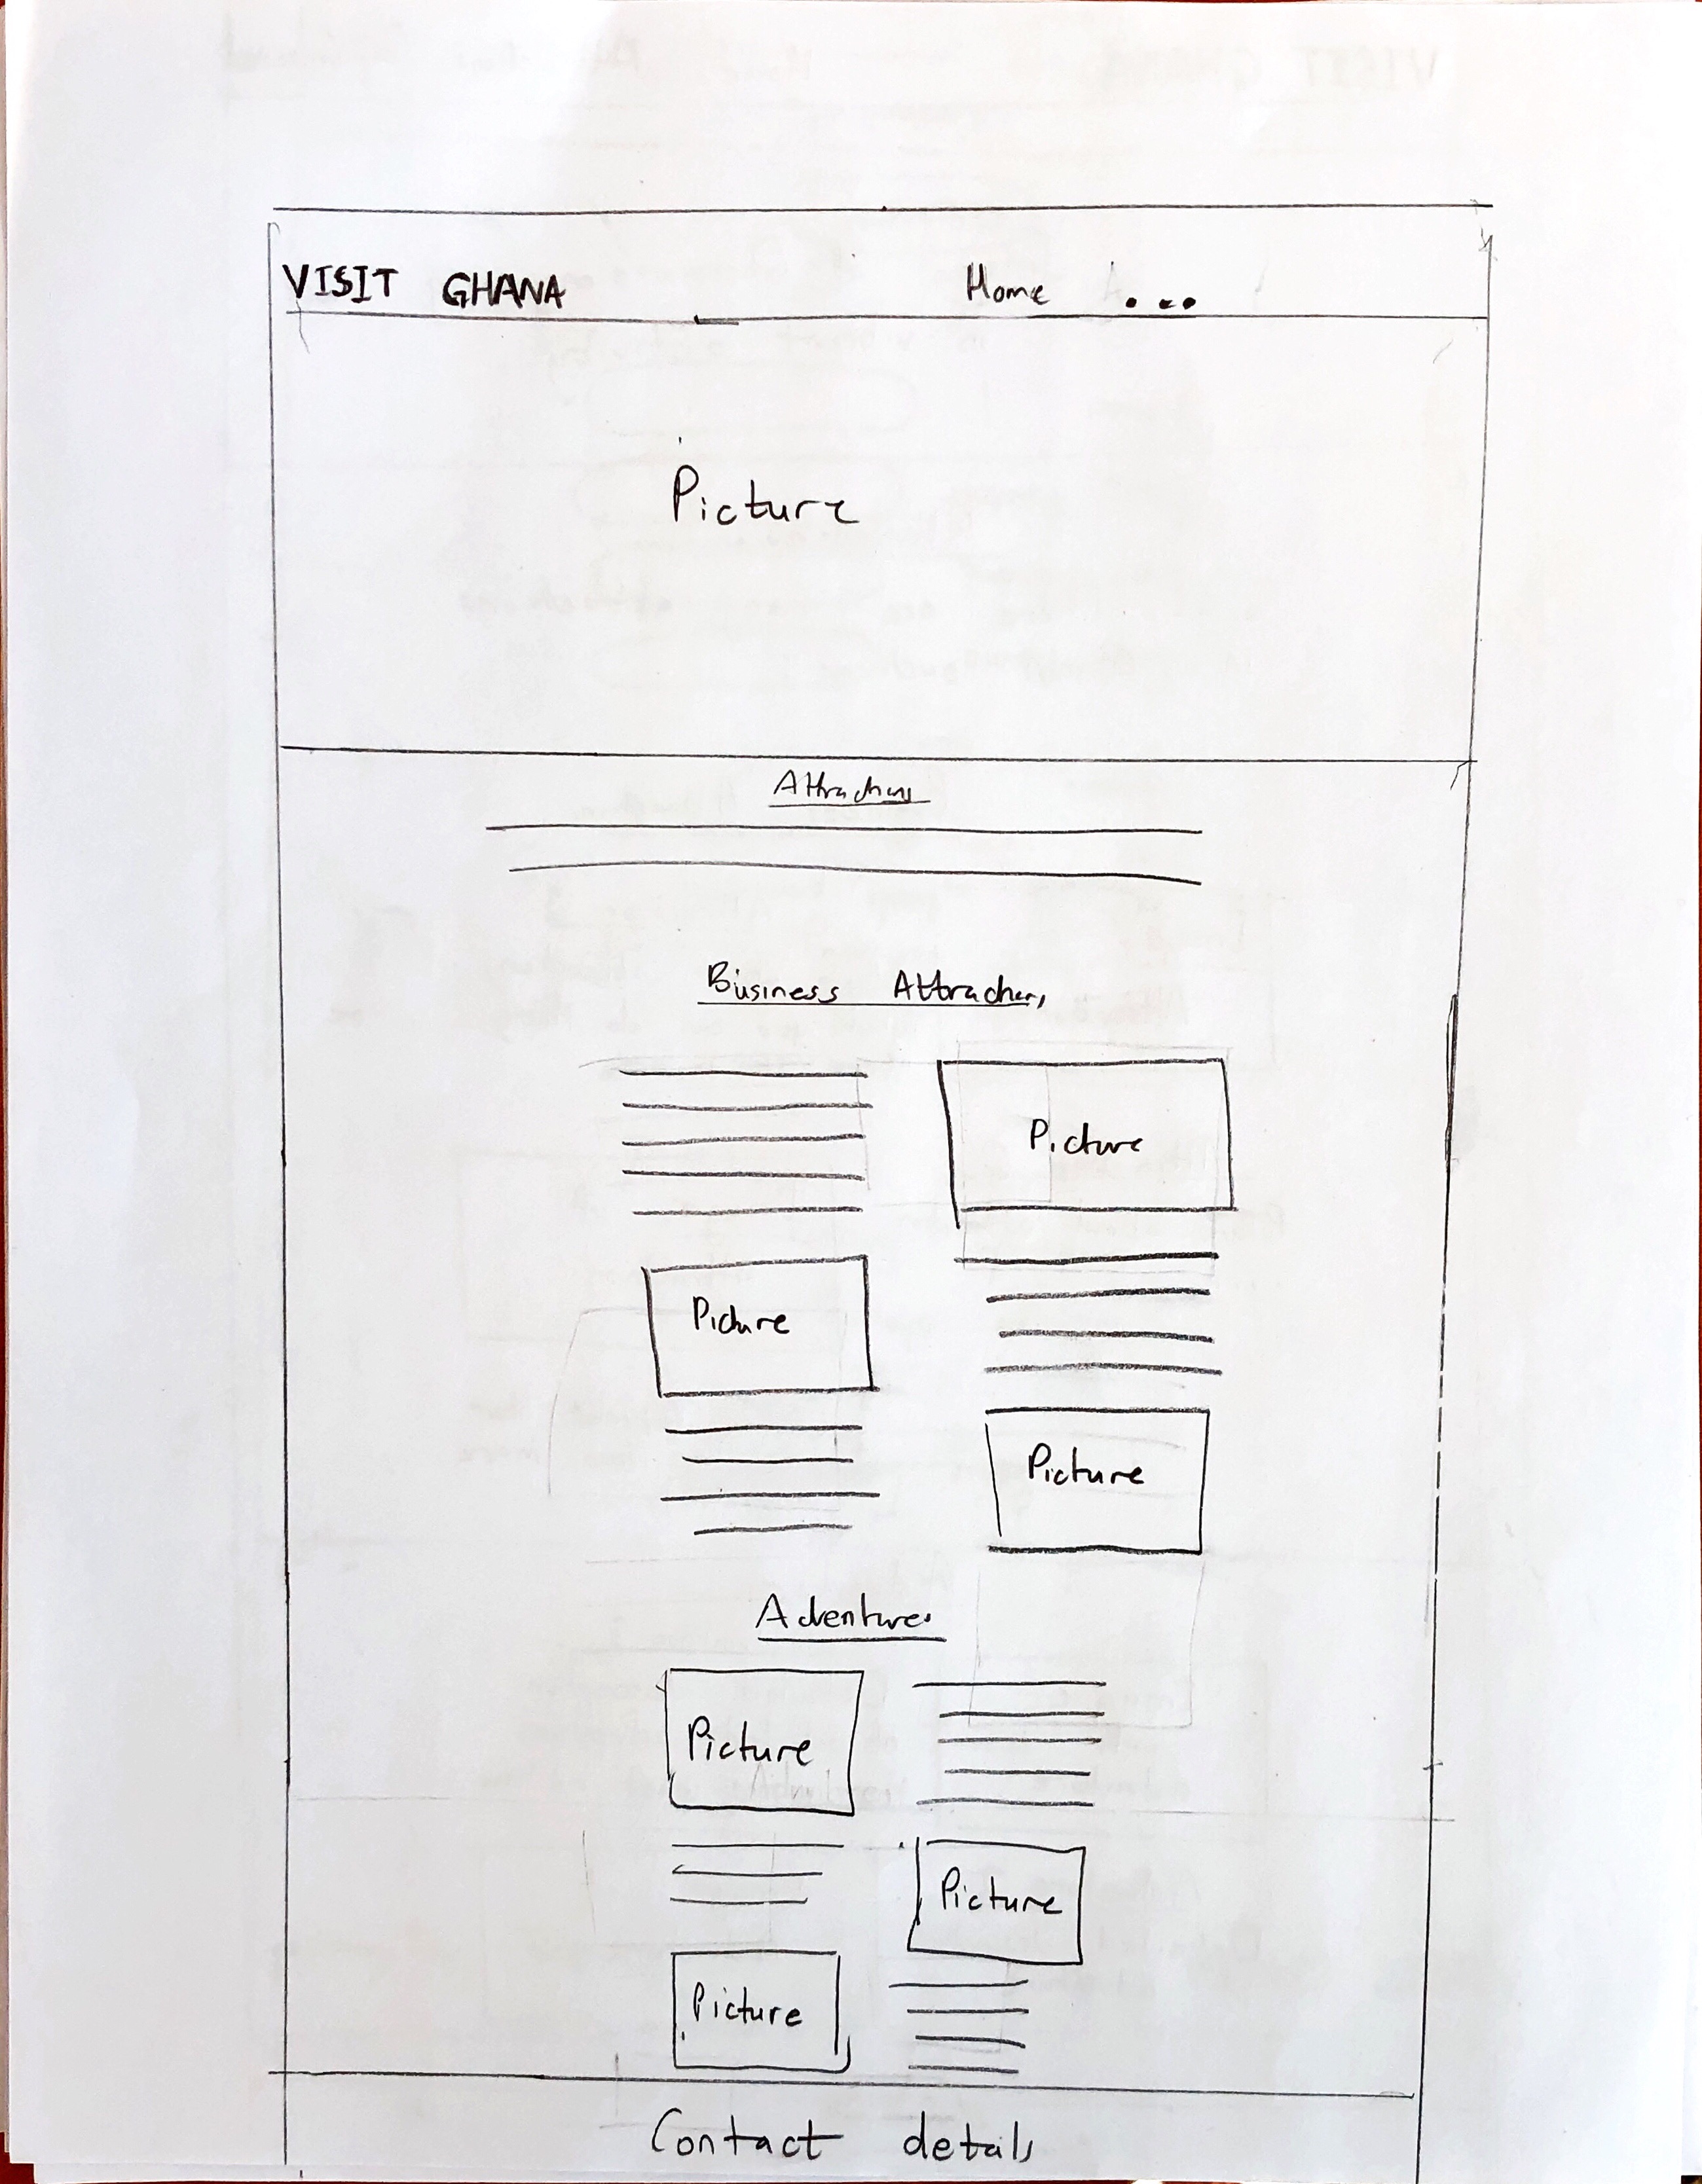 VISIT GHANA Home ...
Picture
Attractions
Business Attractions
Picture
Picture
Picture
Adventures
Picture
Picture
Picture
Contact details